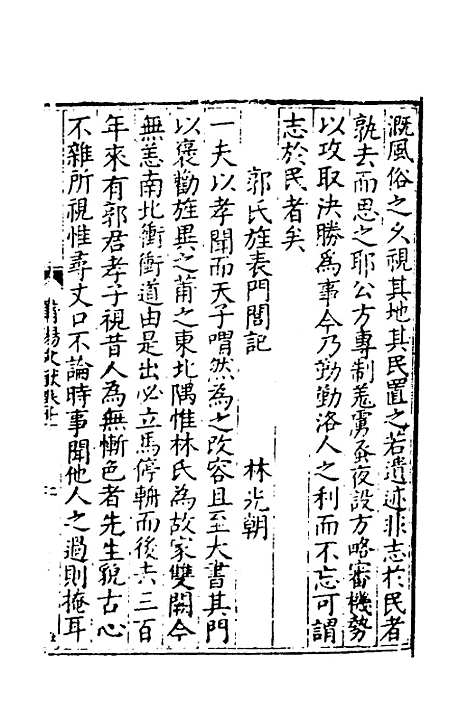 溉風俗之久視其地其民置之若遺迹非志於民者
孰去而思之耶公方專制羗虜蚤夜設方略審機勢
以攻取決勝爲事今乃勤勤洛人之利而不忘可謂
志於民者矣
郭氏旌表門閭記 林光朝
一夫以孝聞而天子喟然為之改容且至大書其門
以褒勸旌異之莆之東北隅惟林氏為故家雙闕今
無恙南北衝衝道由是出必立馬停軸而後去三百
年來有郭君孝子視昔人為無慚色者先生貌古心
不雜所視惟尋丈口不論時事聞他人之過則掩耳
莆陽文獻